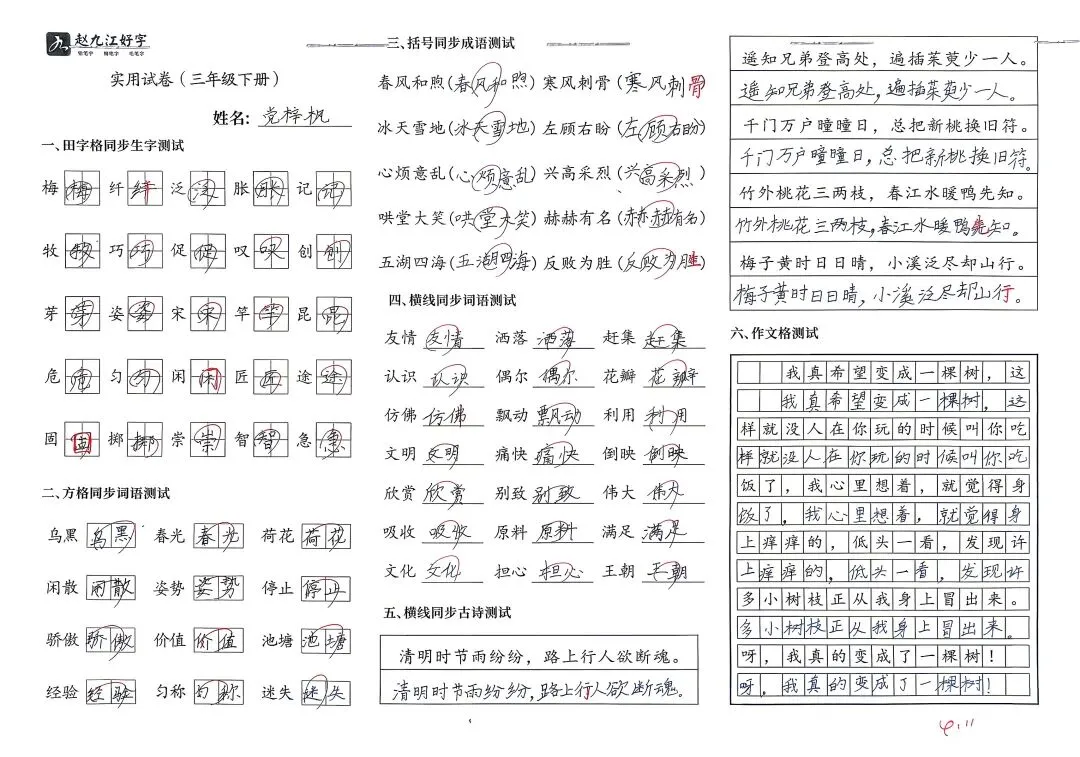 赵九江好字
铅笔字 钢笔字 毛笔字
实用试卷（三年级下册）
姓名: 党梓帆
一、田字格同步生字测试
梅 梅 纤 纤 泛 泛 胀 胀 记 记
牧 牧 巧 巧 促 促 叹 叹 创 创
芽 芽 姿 姿 宋 宋 竿 竿 昆 昆
危 危 匀 匀 闲 闲 匠 匠 途 途
固 固 掷 掷 崇 崇 智 智 急 急
二、方格同步词语测试
乌黑 乌黑 春光 春光 荷花 荷花
闲散 闲散 姿势 姿势 停止 停止
骄傲 骄傲 价值 价值 池塘 池塘
经验 经验 匀称 匀称 迷失 迷失
三、括号同步成语测试
春风和煦(春风和煦) 寒风刺骨(寒风刺骨)
冰天雪地(冰天雪地) 左顾右盼(左顾右盼)
心烦意乱(心烦意乱) 兴高采烈(兴高采烈)
哄堂大笑(哄堂大笑) 赫赫有名(赫赫有名)
五湖四海(五湖四海) 反败为胜(反败为胜)
四、横线同步词语测试
友情 友情 洒落 洒落 赶集 赶集
认识 认识 偶尔 偶尔 花瓣 花瓣
仿佛 仿佛 飘动 飘动 利用 利用
文明 文明 痛快 痛快 倒映 倒映
欣赏 欣赏 别致 别致 伟大 伟大
吸收 吸收 原料 原料 满足 满足
文化 文化 担心 担心 王朝 王朝
五、横线同步古诗测试
清明时节雨纷纷，路上行人欲断魂。
清明时节雨纷纷，路上行人欲断魂。
遥知兄弟登高处，遍插茱萸少一人。
遥知兄弟登高处，遍插茱萸少一人。
千门万户曈曈日，总把新桃换旧符。
千门万户曈曈日，总把新桃换旧符。
竹外桃花三两枝，春江水暖鸭先知。
竹外桃花三两枝，春江水暖鸭先知。
梅子黄时日日晴，小溪泛尽却山行。
梅子黄时日日晴，小溪泛尽却山行。
六、作文格测试
我真希望变成一棵树，这
我真希望变成一棵树，这
样就没人在你玩的时候叫你吃
样就没人在你玩的时候叫你吃
饭了，我心里想着，就觉得身
饭了，我心里想着，就觉得身
上痒痒的，低头一看，发现许
上痒痒的，低头一看，发现许
多小树枝正从我身上冒出来。
多小树枝正从我身上冒出来。
呀，我真的变成了一棵树！
呀，我真的变成了一棵树！